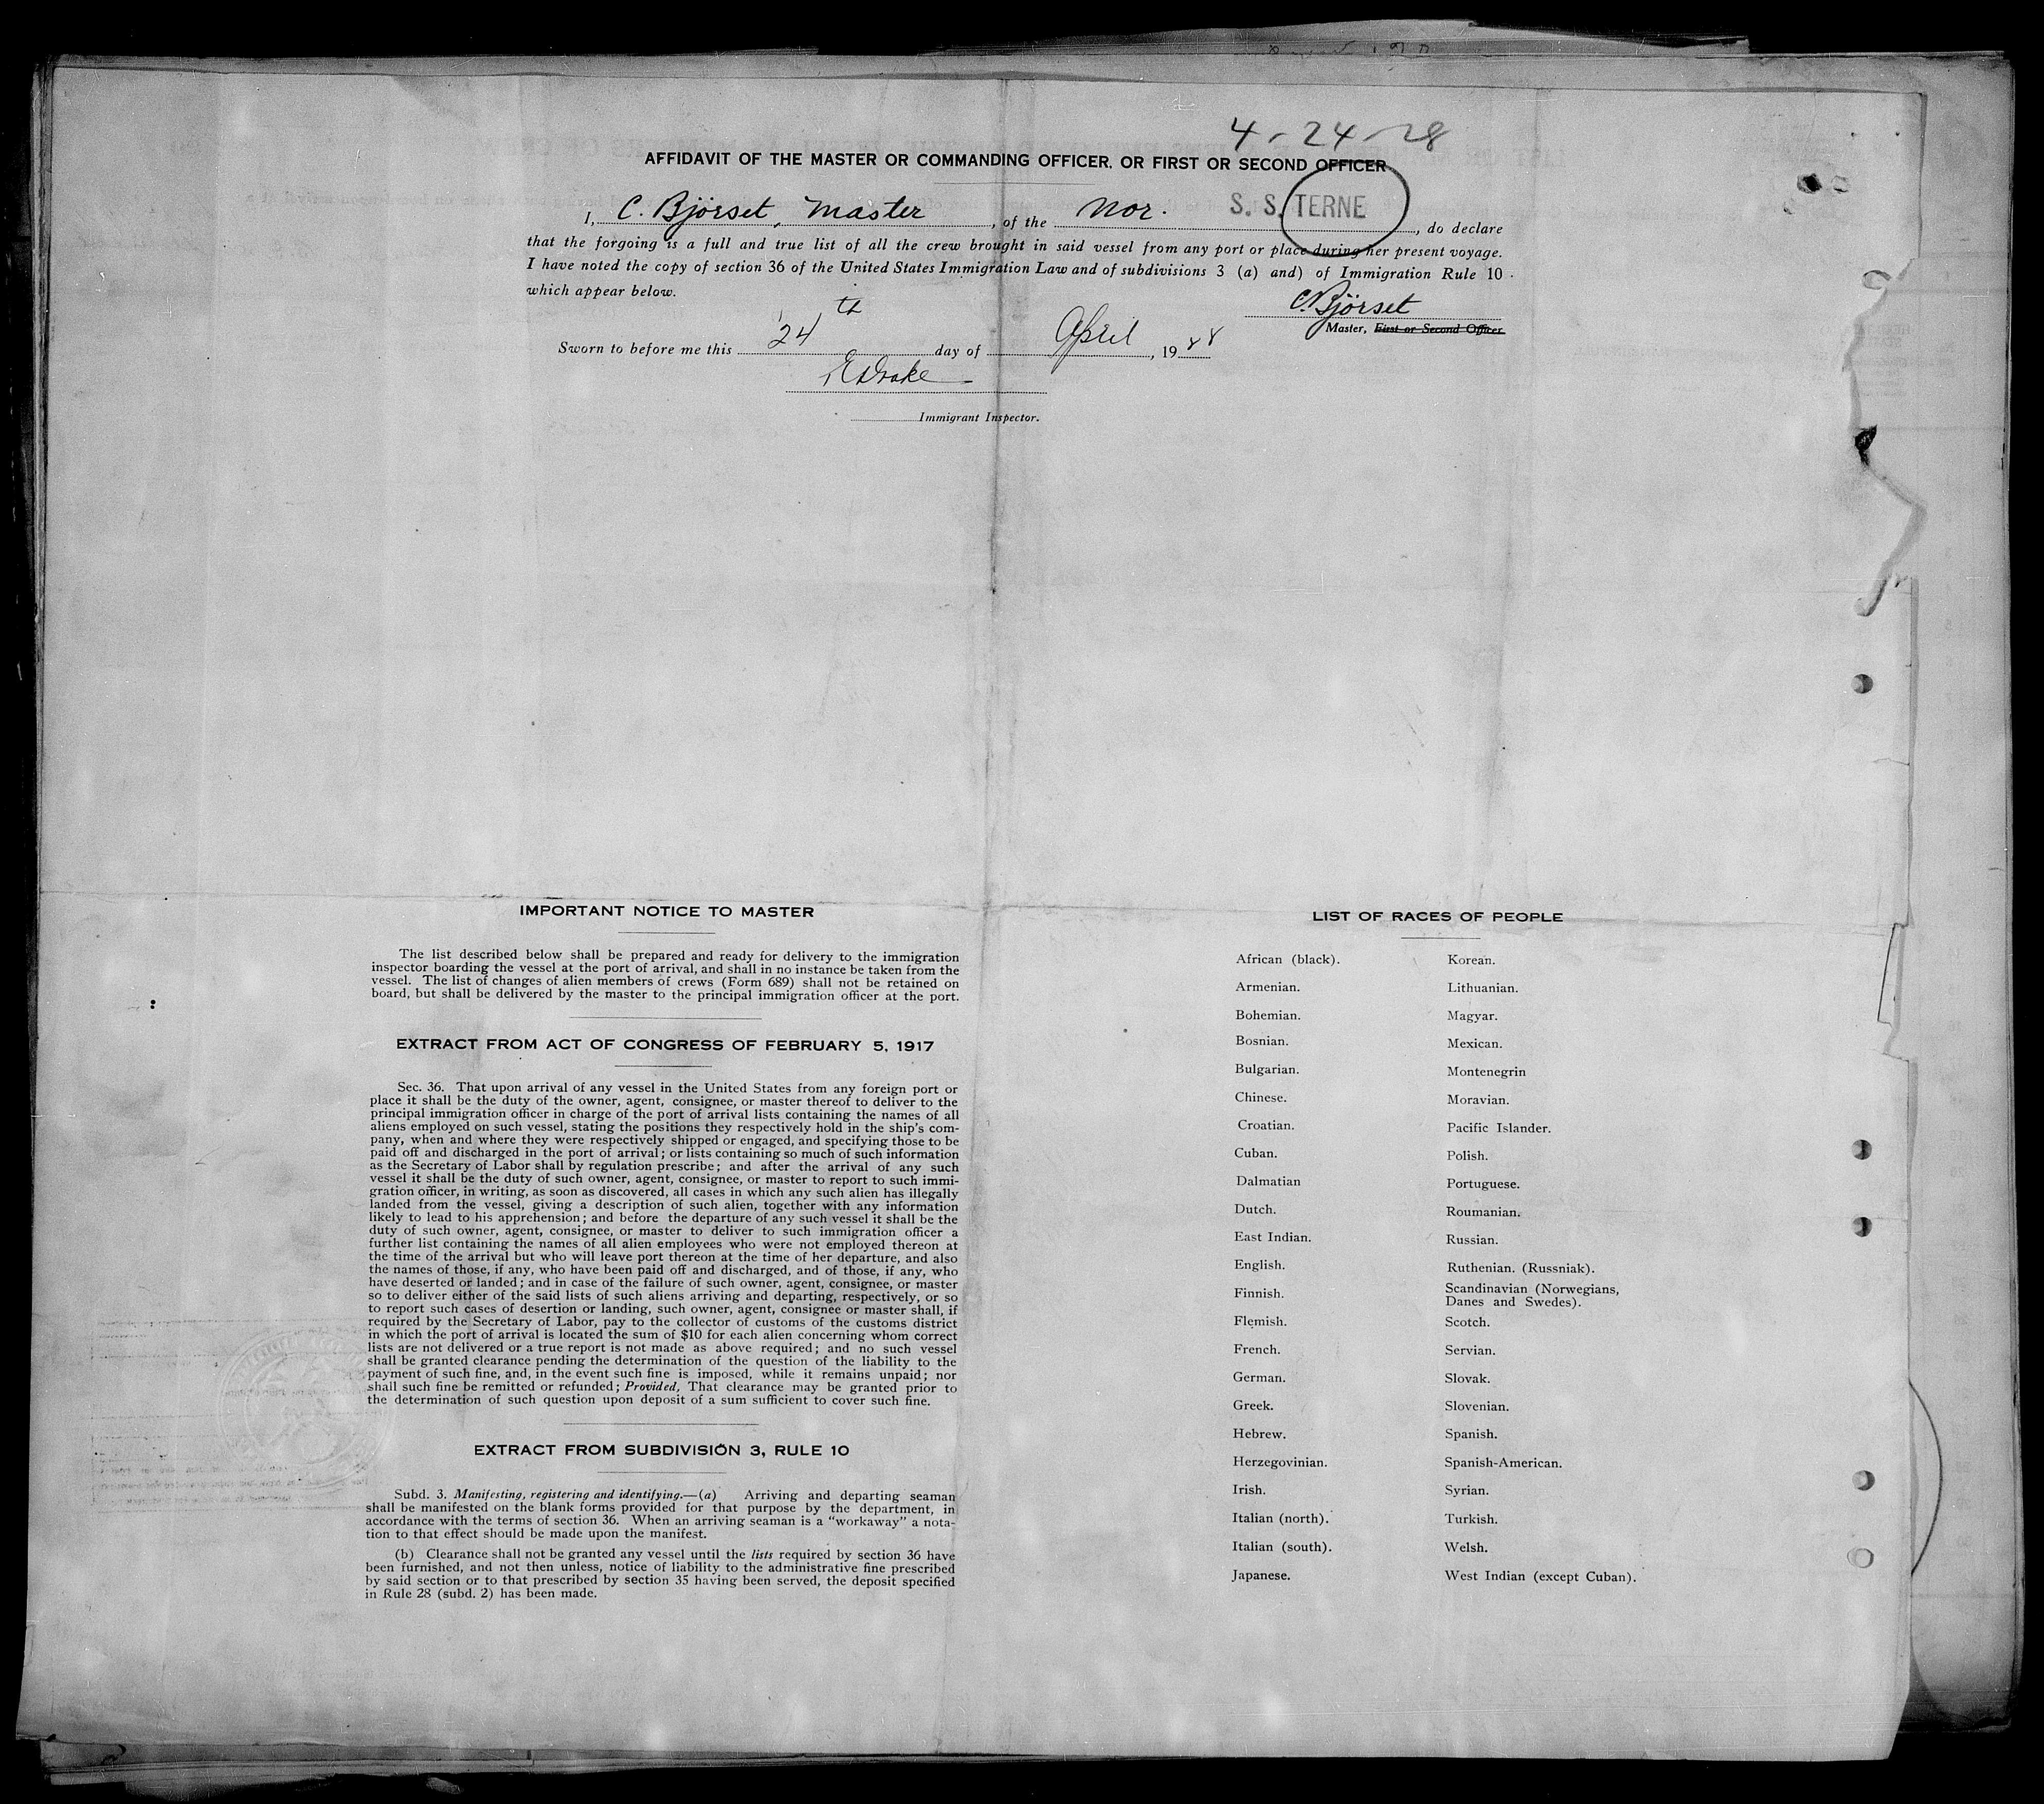 4-24-28
AFFIDAVIT OF THE MASTER OR COMMANDING OFFICER, OR FIRST OR SECOND OFFICER
I, C. Björset, Master, of the Nor. S. S. TERNE, do declare
that the forgoing is a full and true list of all the crew brought in said vessel from any port or place during her present voyage.
I have noted the copy of section 36 of the United States Immigration Law and of subdivisions 3 (a) and) of Immigration Rule 10
which appear below.
C. Björset
Master, First or Second Officer
Sworn to before me this 24th day of April, 1928
Drake
Immigrant Inspector.
IMPORTANT NOTICE TO MASTER
The list described below shall be prepared and ready for delivery to the immigration
inspector boarding the vessel at the port of arrival, and shall in no instance be taken from the
vessel. The list of changes of alien members of crews (Form 689) shall not be retained on
board, but shall be delivered by the master to the principal immigration officer at the port.
EXTRACT FROM ACT OF CONGRESS OF FEBRUARY 5, 1917
Sec. 36. That upon arrival of any vessel in the United States from any foreign port or
place it shall be the duty of the owner, agent, consignee, or master thereof to deliver to the
principal immigration officer in charge of the port of arrival lists containing the names of all
aliens employed on such vessel, stating the positions they respectively hold in the ship's com-
pany, when and where they were respectively shipped or engaged, and specifying those to be
paid off and discharged in the port of arrival; or lists containing so much of such information
as the Secretary of Labor shall by regulation prescribe; and after the arrival of any such
vessel it shall be the duty of such owner, agent, consignee, or master to report to such immi-
gration officer, in writing, as soon as discovered, all cases in which any such alien has illegally
landed from the vessel, giving a description of such alien, together with any information
likely to lead to his apprehension; and before the departure of any such vessel it shall be the
duty of such owner, agent, consignee, or master to deliver to such immigration officer a
further list containing the names of all alien employees who were not employed thereon at
the time of the arrival but who will leave port thereon at the time of her departure, and also
the names of those, if any, who have been paid off and discharged, and of those, if any, who
have deserted or landed; and in case of the failure of such owner, agent, consignee, or master
so to deliver either of the said lists of such aliens arriving and departing, respectively, or so
to report such cases of desertion or landing, such owner, agent, consignee or master shall, if
required by the Secretary of Labor, pay to the collector of customs of the customs district
in which the port of arrival is located the sum of $10 for each alien concerning whom correct
lists are not delivered or a true report is not made as above required; and no such vessel
shall be granted clearance pending the determination of the question of the liability to the
payment of such fine, and, in the event such fine is imposed, while it remains unpaid; nor
shall such fine be remitted or refunded; Provided, That clearance may be granted prior to
the determination of such question upon deposit of a sum sufficient to cover such fine.
EXTRACT FROM SUBDIVISION 3, RULE 10
Subd. 3. Manifesting, registering and identifying.—(a) Arriving and departing seaman
shall be manifested on the blank forms provided for that purpose by the department, in
accordance with the terms of section 36. When an arriving seaman is a "workaway" a nota-
tion to that effect should be made upon the manifest.
(b) Clearance shall not be granted any vessel until the lists required by section 36 have
been furnished, and not then unless, notice of liability to the administrative fine prescribed
by said section or to that prescribed by section 35 having been served, the deposit specified
in Rule 28 (subd. 2) has been made.
LIST OF RACES OF PEOPLE
African (black).
Armenian.
Bohemian.
Bosnian.
Bulgarian.
Chinese.
Croatian.
Cuban.
Dalmatian
Dutch.
East Indian.
English.
Finnish.
Flemish.
French.
German.
Greek.
Hebrew.
Herzegovinian.
Irish.
Italian (north).
Italian (south).
Japanese.
Korean.
Lithuanian.
Magyar.
Mexican.
Montenegrin
Moravian.
Pacific Islander.
Polish.
Portuguese.
Roumanian.
Russian.
Ruthenian. (Russniak).
Scandinavian (Norwegians,
Danes and Swedes).
Scotch.
Servian.
Slovak.
Slovenian.
Spanish.
Spanish-American.
Syrian.
Turkish.
Welsh.
West Indian (except Cuban).